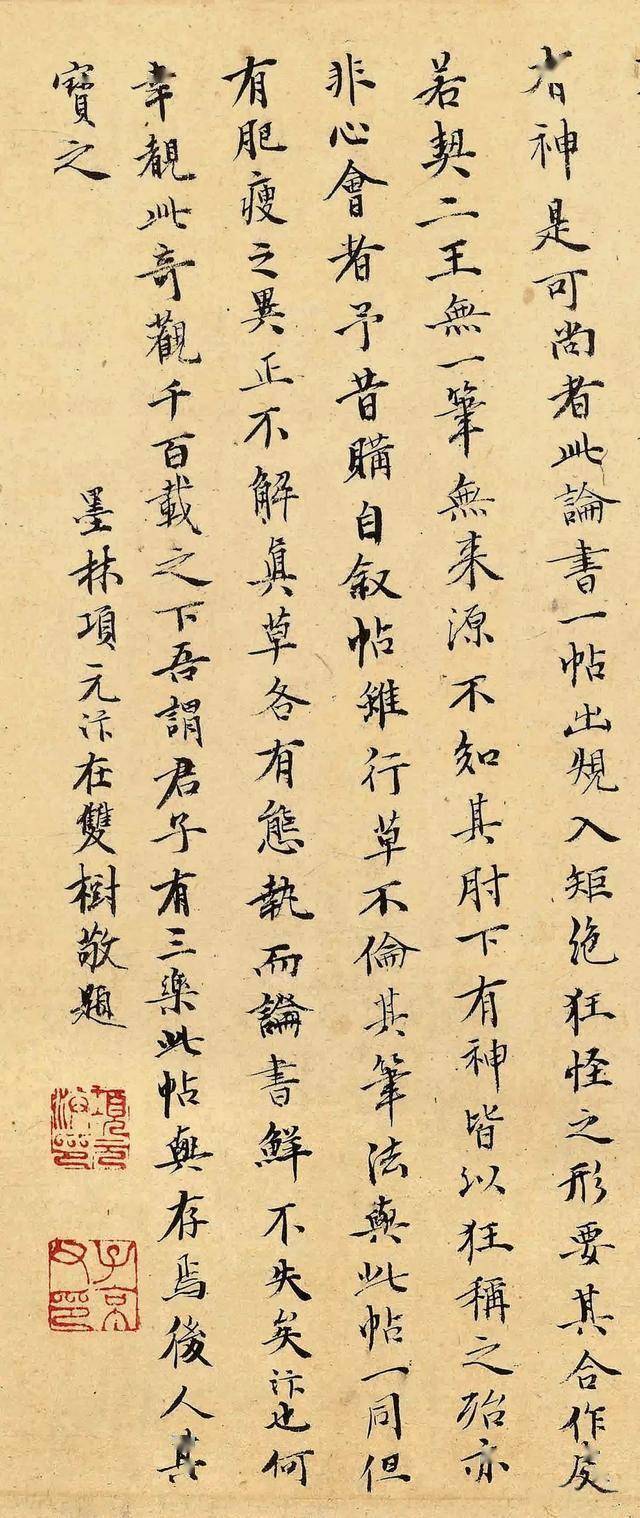 有神是可尚者此論書一帖出規入矩絶狂怪之形要其合作處
若契二王無一筆無来源不知其肘下有神皆以狂稱之殆亦
非心會者予昔購自叙帖雖行草不倫其筆法與此帖一同但
有肥瘦之異正不解真草各有態執而論書鮮不失矣汴也何
幸覩此奇觀千百載之下吾謂君子有三樂此帖與存焉後人其
寳之
墨林項元汴在雙樹敬題
項元汴印
子京父印